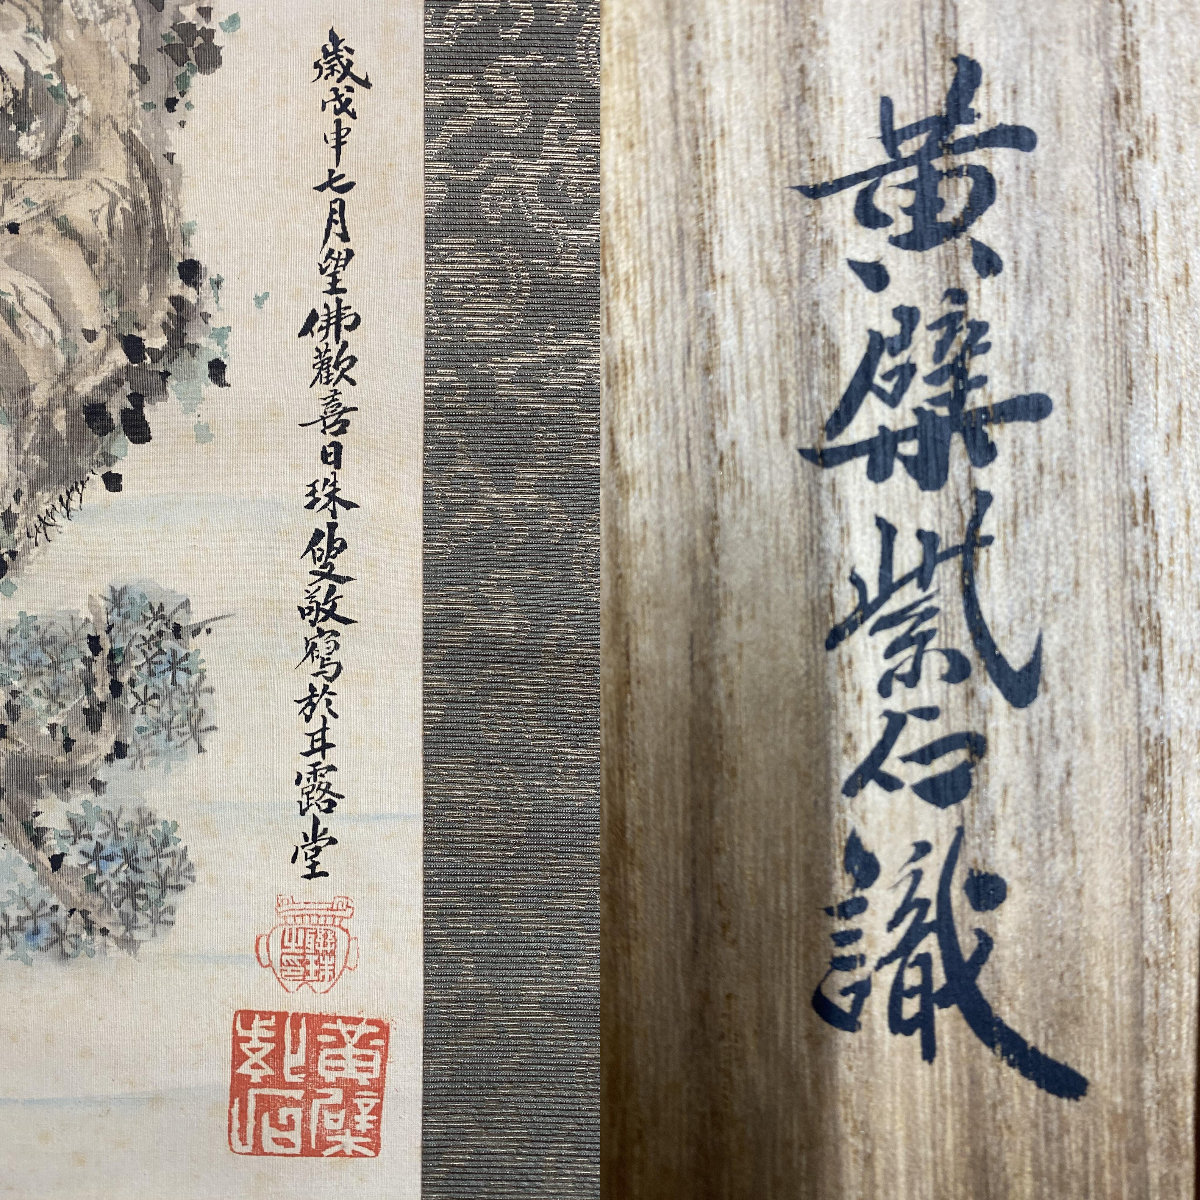 歳戊申七月望佛歡喜日珠叟敬寫於甘露堂
黄檗
紫石
黄檗紫石識